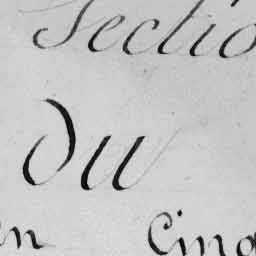 Sectio
Du
en Cinq